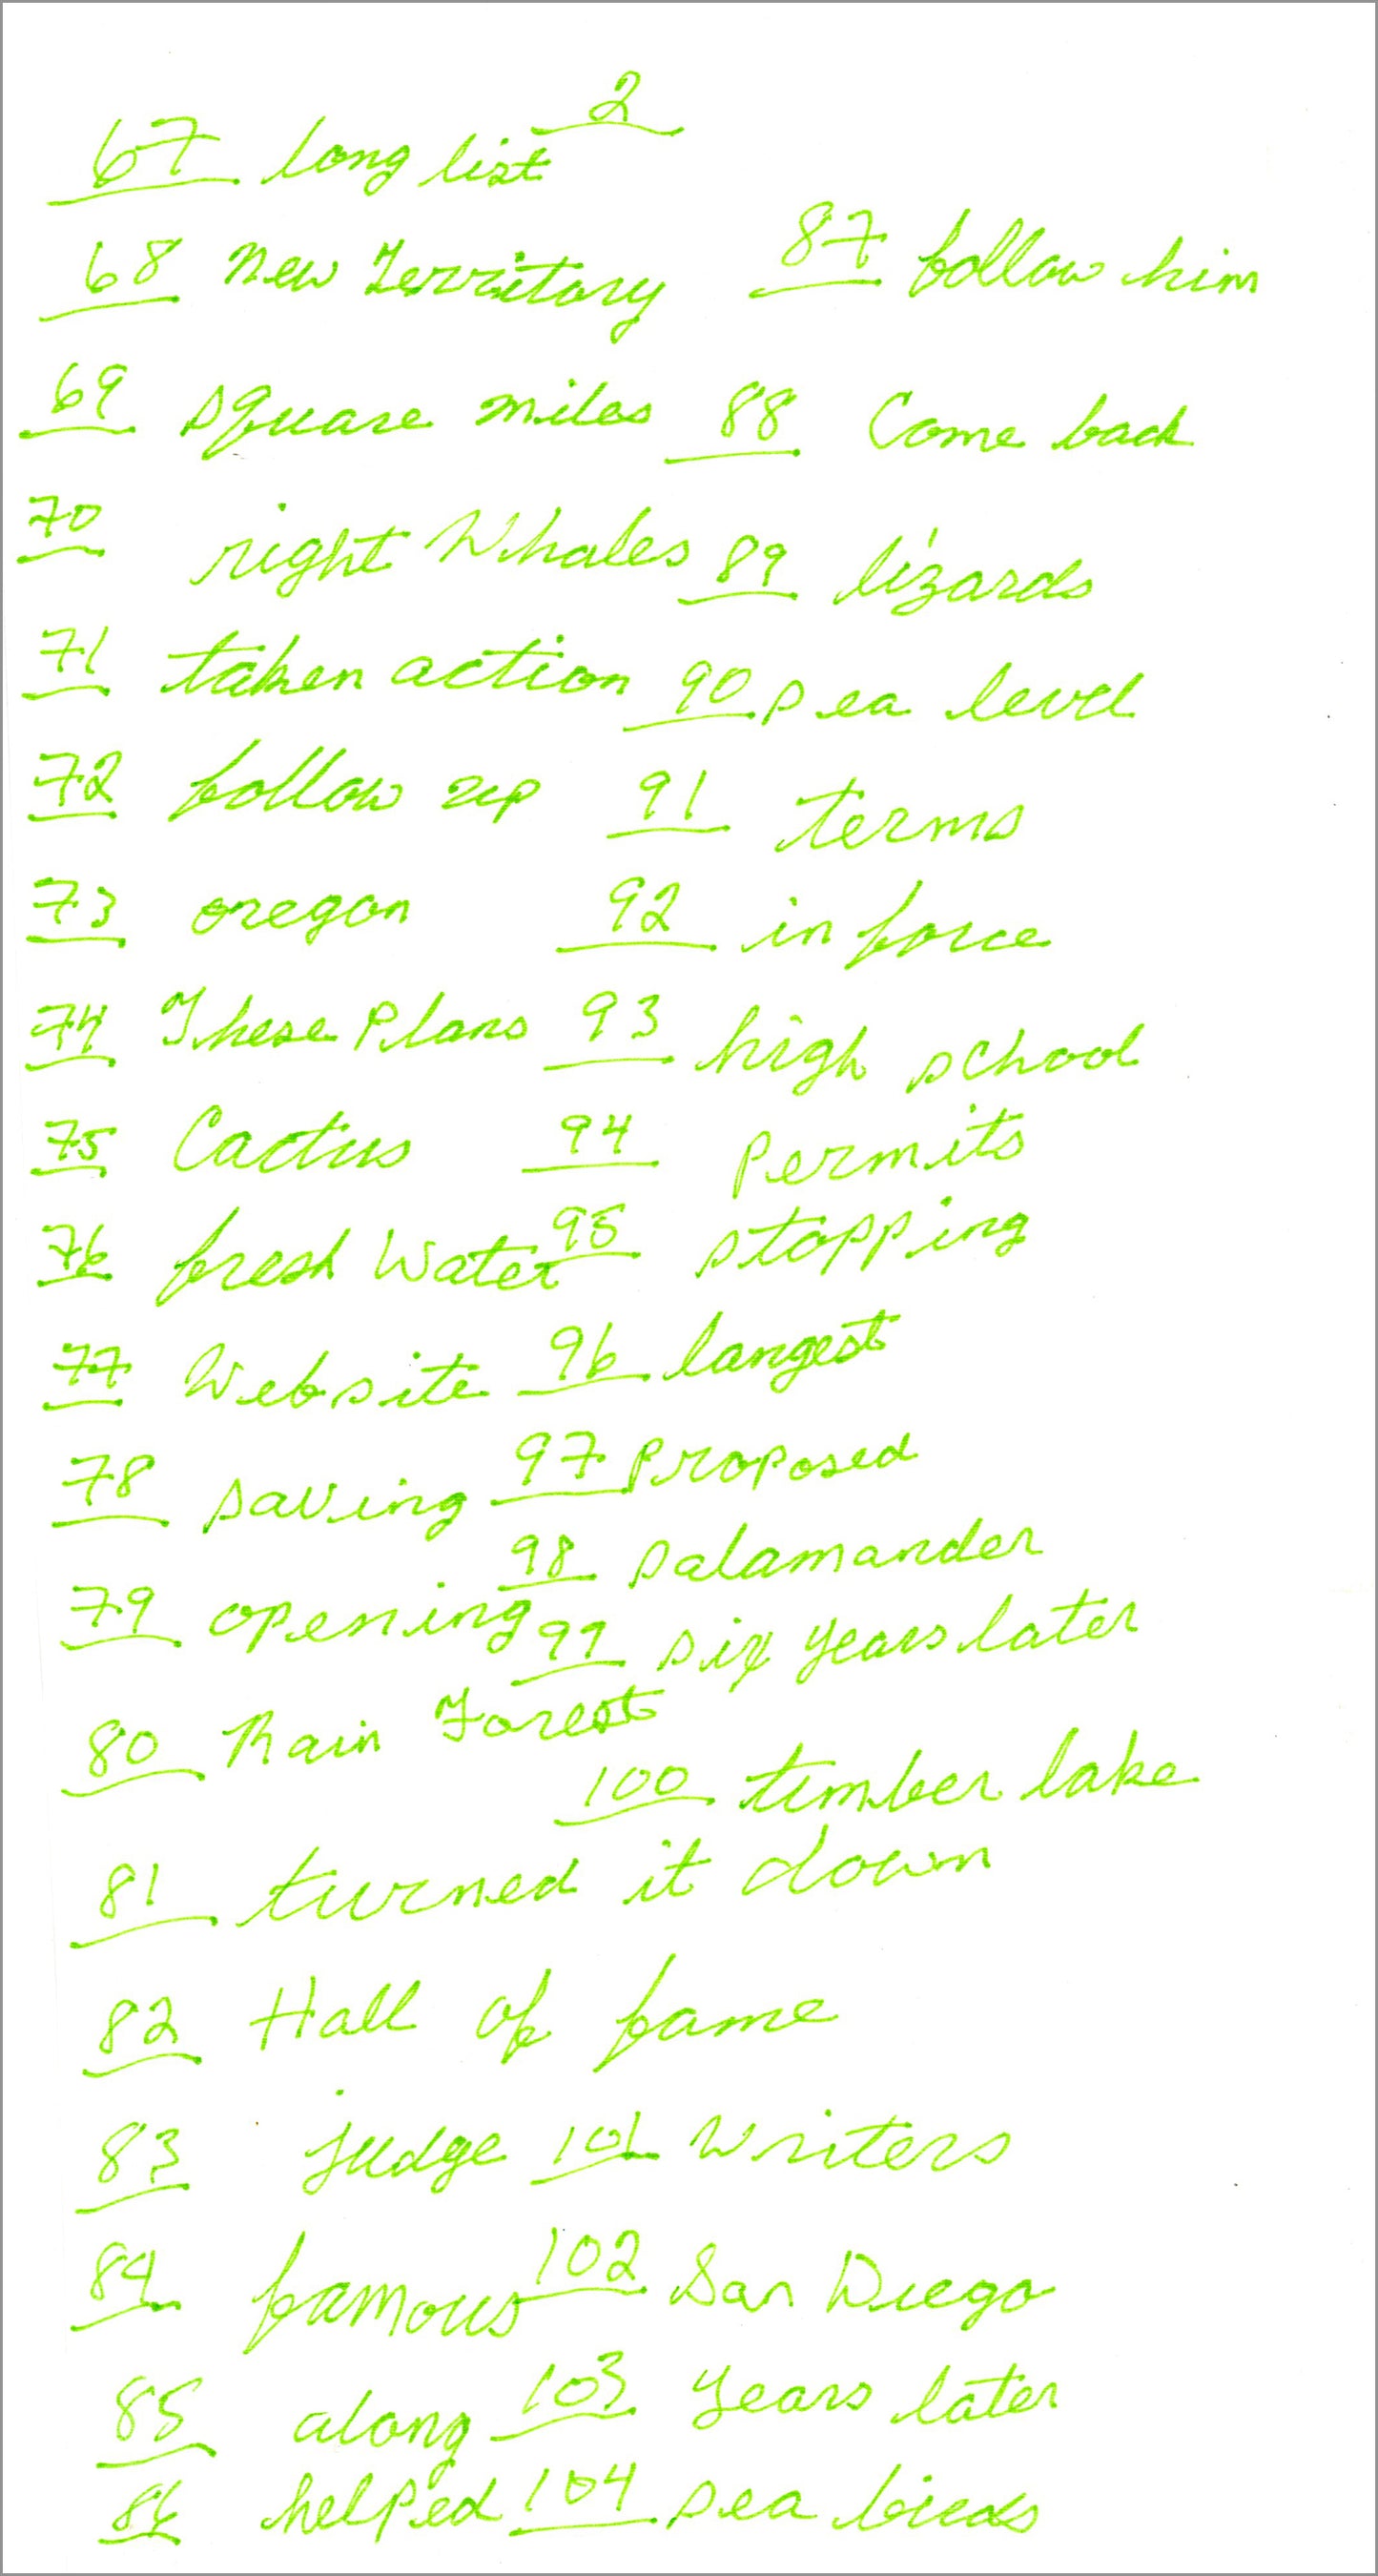 2
67 long list
68 New Territory 87 follow him
69 square miles 88 Come back
70 right Whales 89 lizards
71 taken action 90 sea level
72 follow up 91 terms
73 oregon 92 in force
74 These Plans 93 high school
75 Cactus 94 Permits
76 fresh Water 95 stopping
77 Website 96 largest
78 saving 97 Proposed
98 salamander
79 opening 99 six years later
80 Rain Forest
100 timber lake
81 turned it down
82 Hall of fame
83 judge 101 Writers
84 famous 102 San Diego
85 along 103 years later
86 helped 104 sea birds